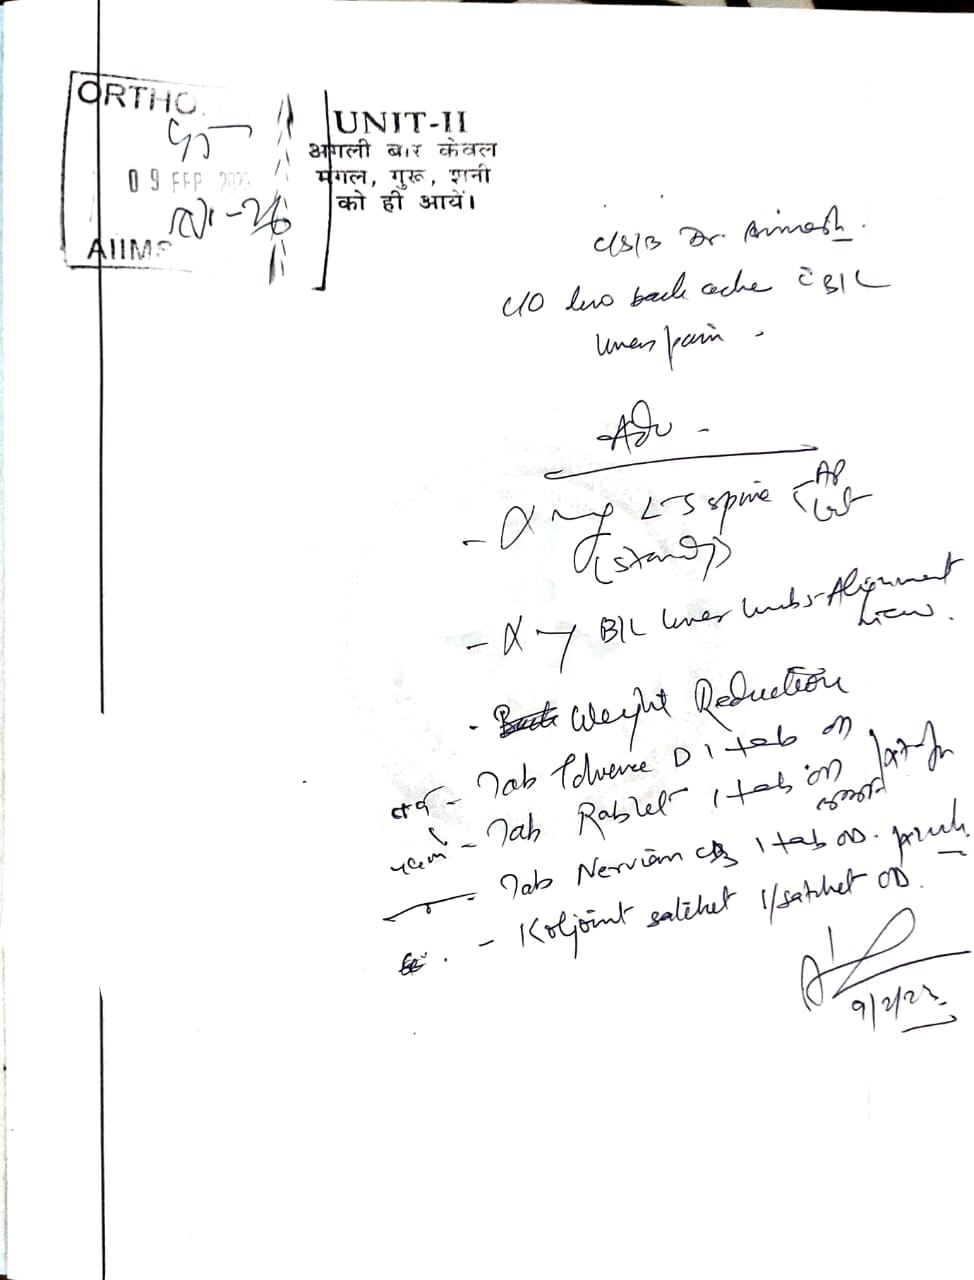 ORTHO.
09 FEB
AIIMS
UNIT-II
अगली बार केवल
मंगल, गुरू, शनी
को ही आयें।
C/S/B Dr. Avinash.
C/O low back ache c̄ B/L
knee pain.
Adv -
- X ray L-S spine AP
Lat
(standg)
- X-ray B/L lower limbs-Alignment
view.
- Weight Reduction
- Tab D 1 tab
- Tab Rablet 1 tab OD
- Tab 1 tab OD.
- Koljoint satchet 1/satchet OD.
9/2/23